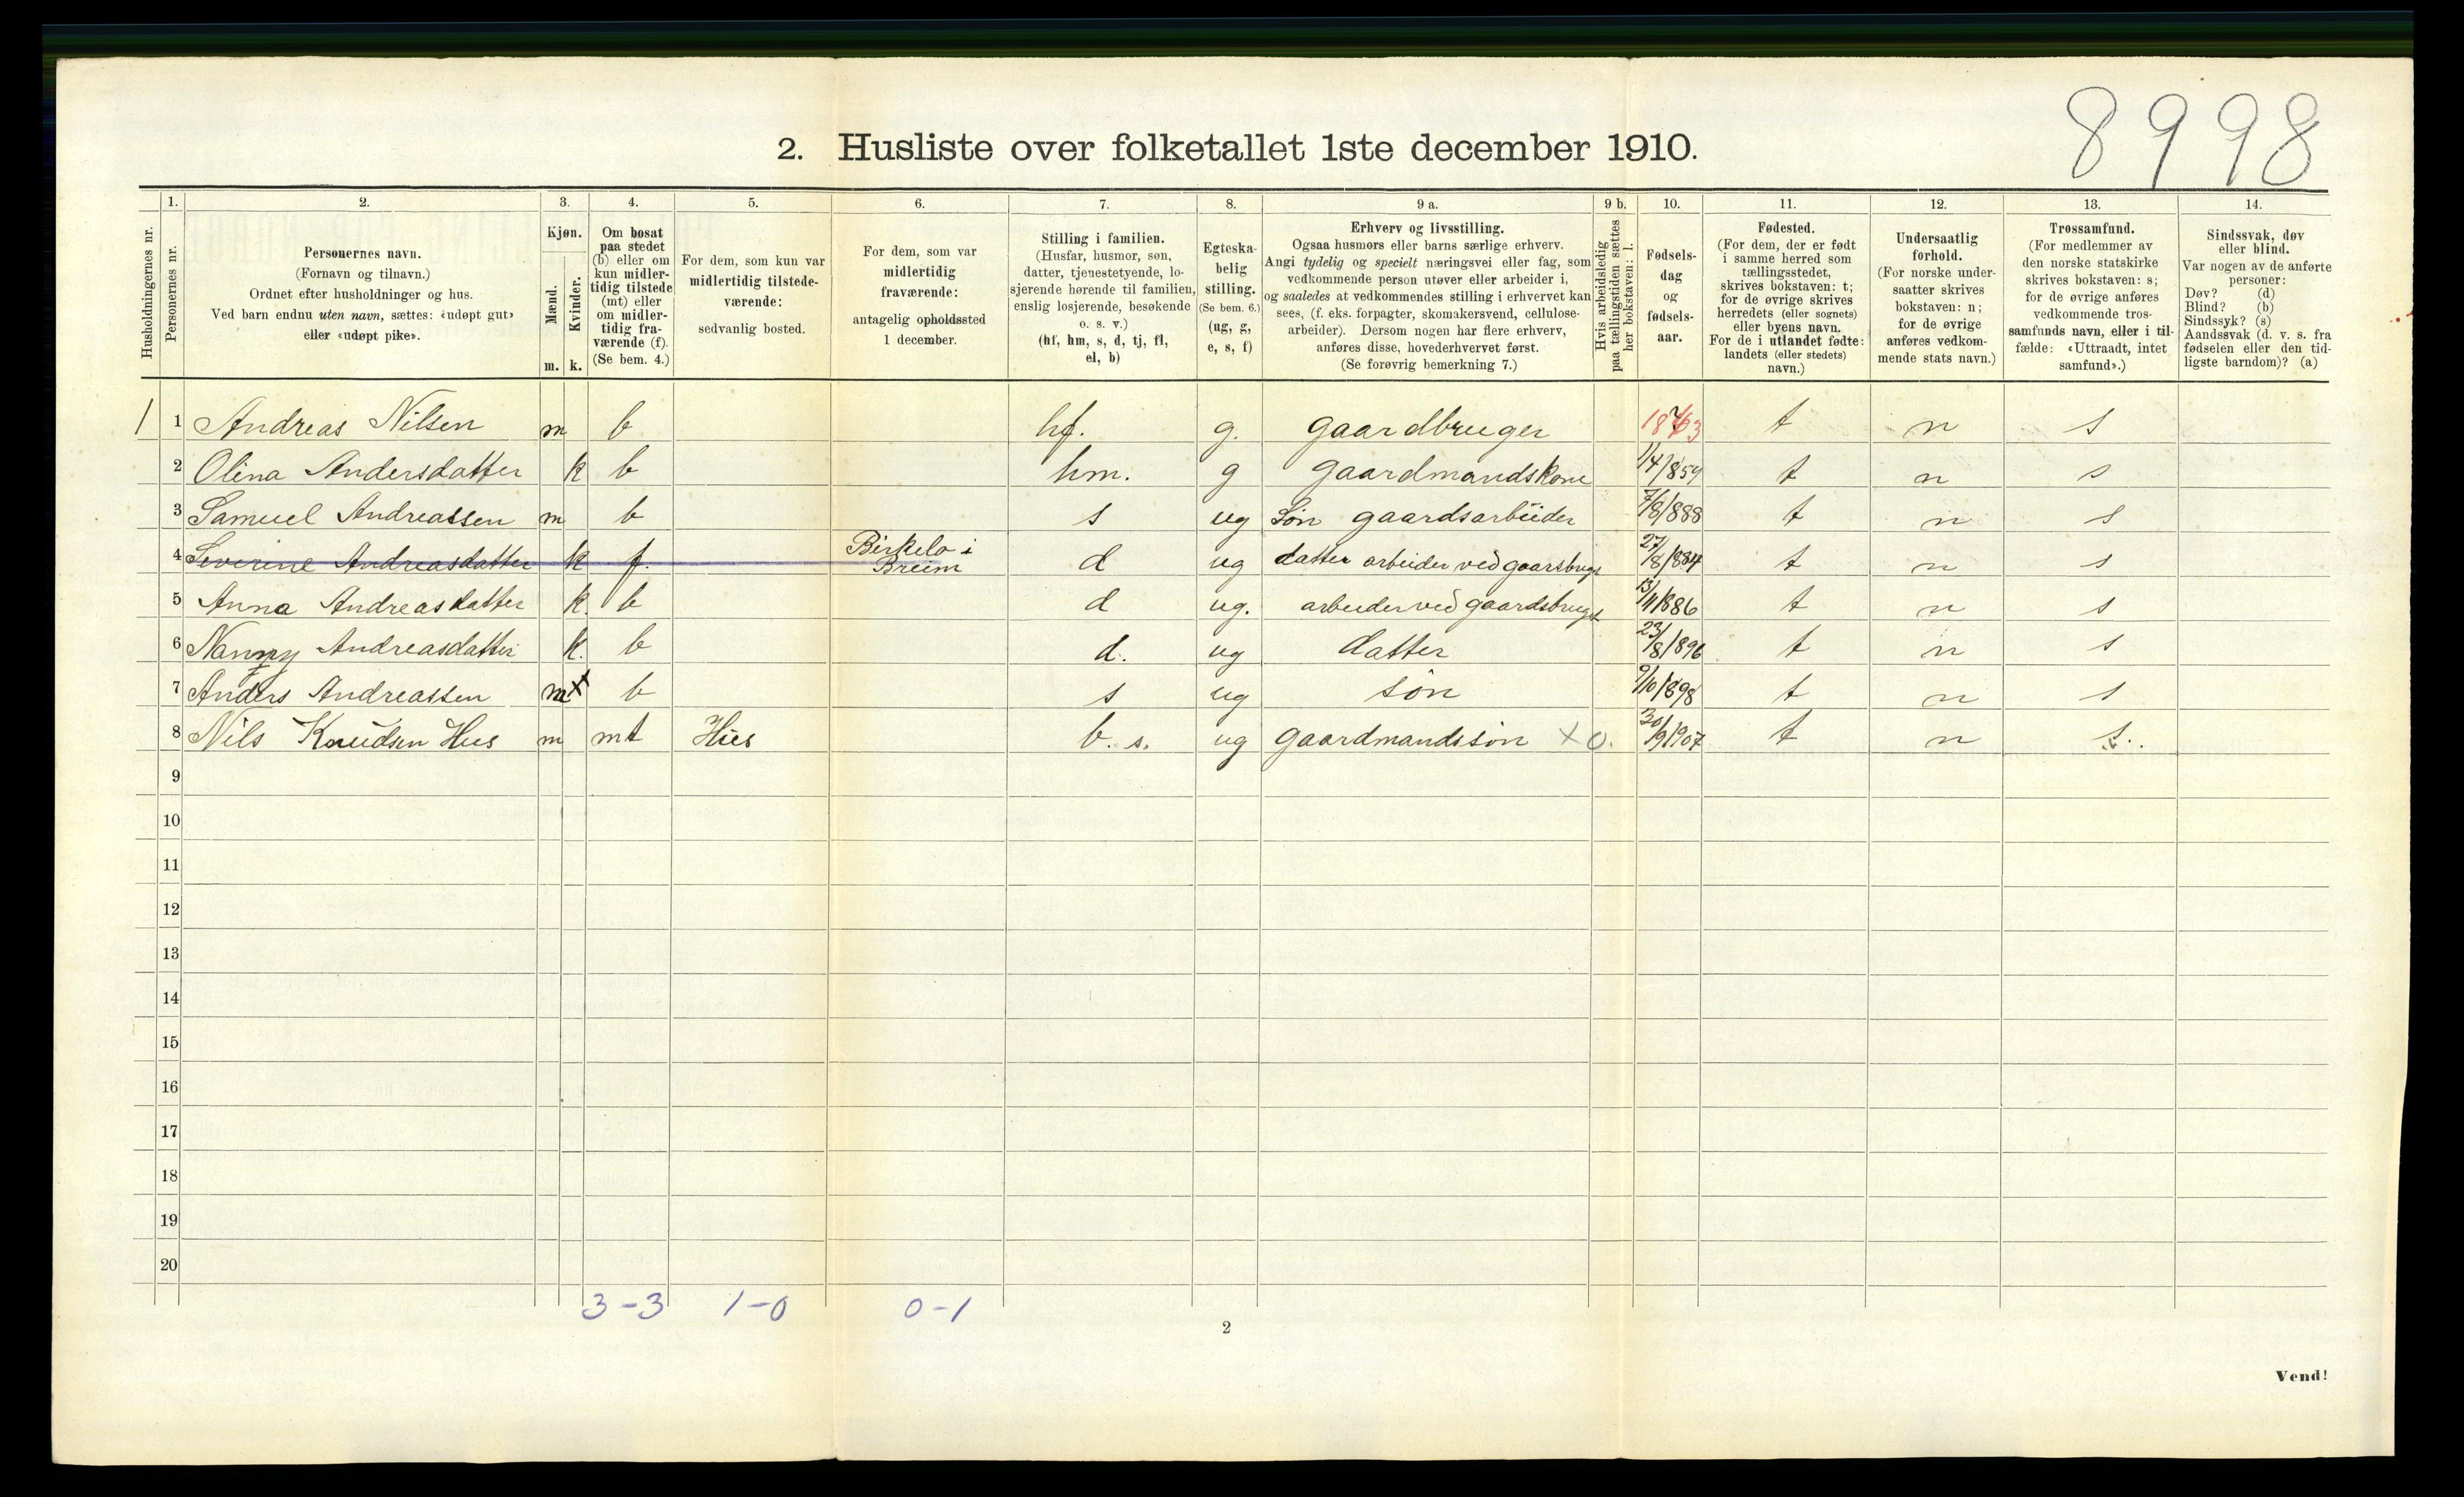 8998
2. Husliste over folketallet 1ste december 1910.
Husholdningernes nr.
1.
Personernes nr.
2.
Personernes navn.
(Fornavn og tilnavn.)
Ordnet efter husholdninger og hus.
Ved barn endnu uten navn, sættes: «udøpt gut»
eller «udøpt pike».
3.
Kjøn.
Mænd.
Kvinder.
m. k.
4.
Om bosat
paa stedet
(b) eller om
kun midler-
tidig tilstede
(mt) eller
om midler-
tidig fra-
værende (f).
(Se bem. 4.)
5.
For dem, som kun var
midlertidig tilstede-
værende:
sedvanlig bosted.
6.
For dem, som var
midlertidig
fraværende:
antagelig opholdssted
1 december.
7.
Stilling i familien.
(Husfar, husmor, søn,
datter, tjenestetyende, lo-
sjerende hørende til familien,
enslig losjerende, besøkende
o. s. v.)
(hf, hm, s, d, tj, fl,
el, b)
8.
Egteska-
belig
stilling.
(Se bem. 6.)
(ug, g,
e, s, f)
9 a.
Erhverv og livsstilling.
Ogsaa husmors eller barns særlige erhverv.
Angi tydelig og specielt næringsvei eller fag, som
vedkommende person utøver eller arbeider i,
og saaledes at vedkommendes stilling i erhvervet kan
sees, (f. eks. forpagter, skomakersvend, cellulose-
arbeider). Dersom nogen har flere erhverv,
anføres disse, hovederhvervet først.
(Se forøvrig bemerkning 7.)
9 b.
Hvis arbeidsledig
paa tællingstiden sættes
her bokstaven: l.
10.
Fødsels-
dag
og
fødsels-
aar.
11.
Fødested.
(For dem, der er født
i samme herred som
tællingsstedet,
skrives bokstaven: t;
for de øvrige skrives
herredets (eller sognets)
eller byens navn.
For de i utlandet fødte:
landets (eller stedets)
navn.)
12.
Undersaatlig
forhold.
(For norske under-
saatter skrives
bokstaven: n;
for de øvrige
anføres vedkom-
mende stats navn.)
13.
Trossamfund.
(For medlemmer av
den norske statskirke
skrives bokstaven: s;
for de øvrige anføres
vedkommende tros-
samfunds navn, eller i til-
fælde: «Uttraadt, intet
samfund».)
14.
Sindssvak, døv
eller blind.
Var nogen av de anførte
personer:
Døv? (d)
Blind? (b)
Sindssyk? (s)
Aandssvak (d. v. s. fra
fødselen eller den tid-
ligste barndom)? (a)
1 1 Andreas Nilsen m b hf. g. gaardbruger t n s
2 Olina Andersdatter k b hm. g gaardmandskone 1/4/859 t n s
3 Samuel Andreassen m b s ug Søn gaardsarbeider 7/8/888 t n s
4 Severine Andreasdatter k f. Birkelo i Breim d ug datter arbeider ved gaarsbruge 27/8/884 t n s
5 Anna Andreasdatter k. b d ug. arbeider ved gaardsbruget 13/11/886 t n s
6 Nanny Andreasdatter k. b d. ug datter 23/8/896 t n s
7 Anders Andreassen m x b s ug søn 9/10/898 t n s
8 Nils Knudsen Hus m mt Hus b. s. ug gaardmandssøn x 0. 30/9/1907 t n s.
9
10
11
12
13
14
15
16
17
18
19
20
3-3 1-0 0-1
2
Vend!